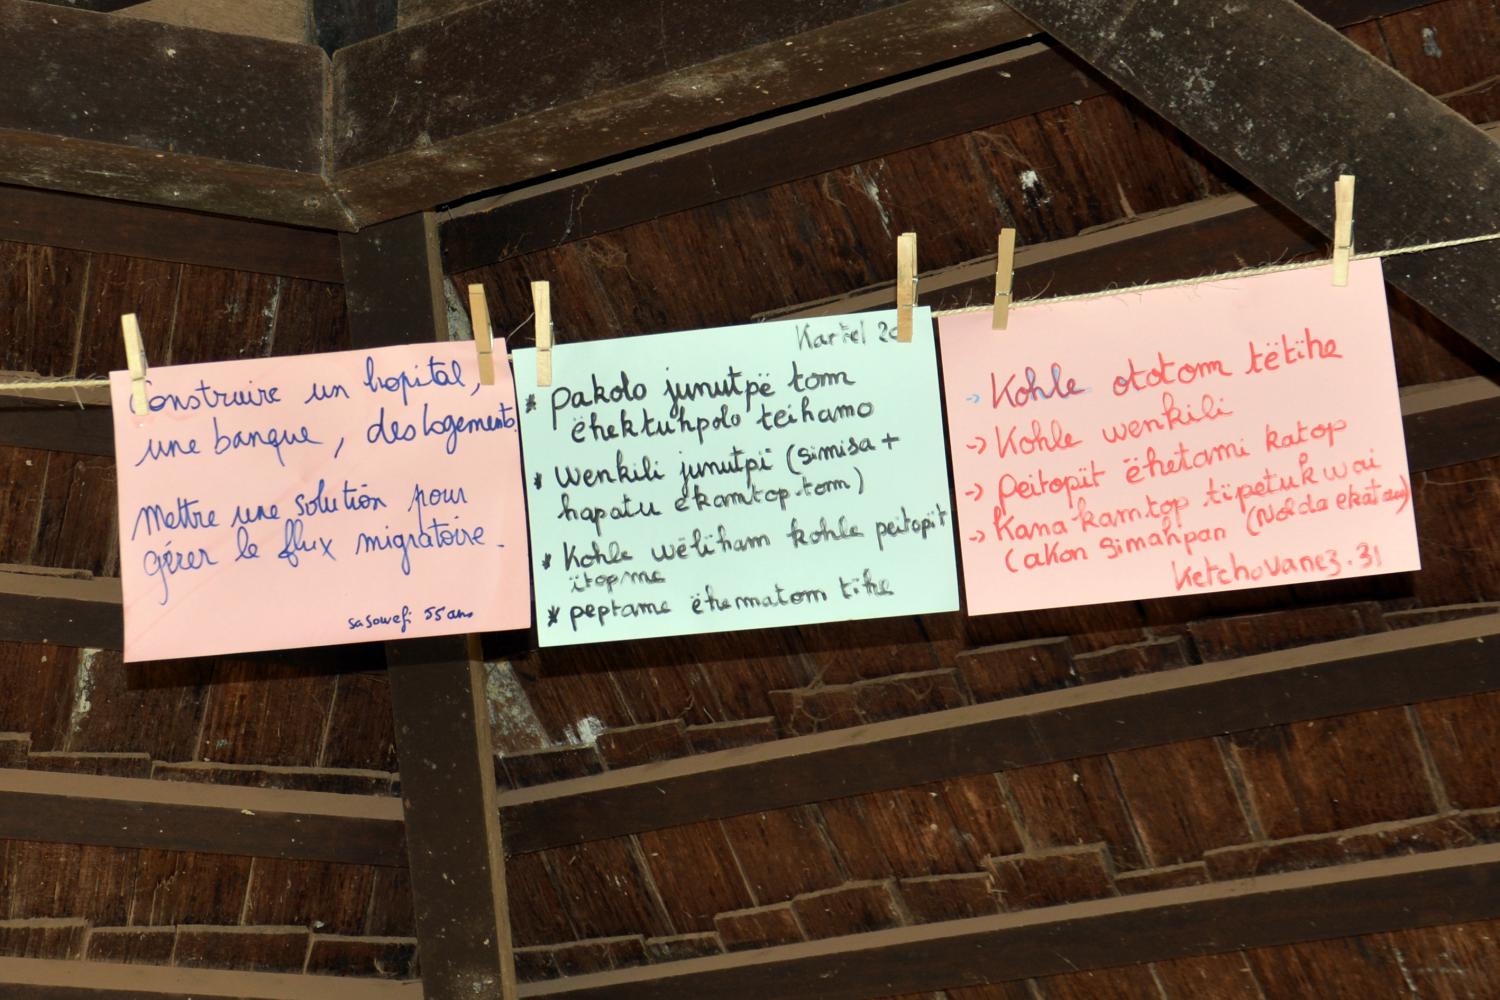 Construire un hopital,
une banque, des logements.
Mettre une solution pour
gérer le flux migratoire.
sasowefi 55 ans
Kartel
* pakolo junutpë tom
ëhektuhpolo teihamo
* wenkili junutpï (simisa +
hapatu ekamtop tom)
* Kohle wëliham kohle peitopït
ïtopme
* peptame ëhematom tïhe
-> Kohle ototom tëtïhe
-> Kohle wenkili
-> peitopït ëhetami katop
-> Kana kamtop tïpetukwai
(akon simahpan (Nolda ekatau)
Ketchovane3.31